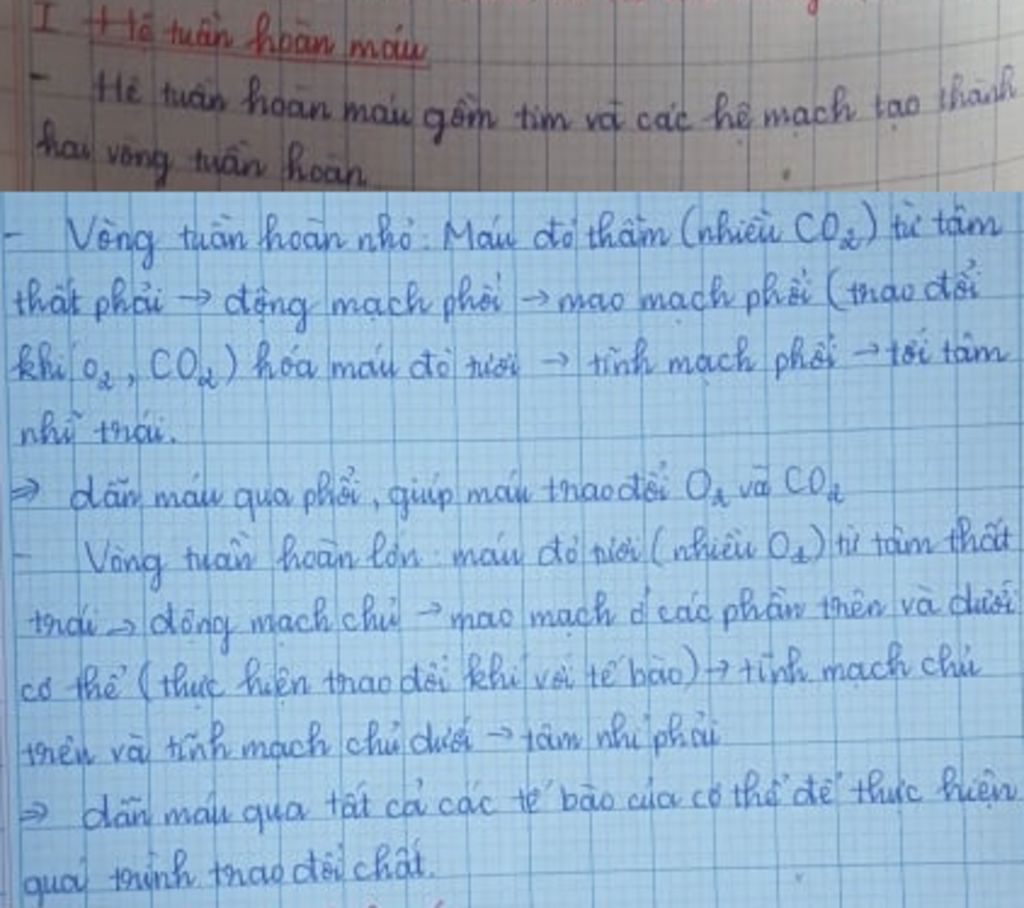 I Hệ tuần hoàn máu
- Hệ tuần hoàn máu gồm tim và các hệ mạch tạo thành
hai vòng tuần hoàn
- Vòng tuần hoàn nhỏ: Máu đỏ thẫm (nhiều CO₂) từ tâm
thất phải → động mạch phổi → mao mạch phổi (trao đổi
khí O₂, CO₂) hóa máu đỏ tươi → tĩnh mạch phổi → tới tâm
nhĩ trái.
⇒ dẫn máu qua phổi, giúp máu trao đổi O₂ và CO₂
- Vòng tuần hoàn lớn: máu đỏ tươi (nhiều O₂) từ tâm thất
trái → động mạch chủ → mao mạch ở các phần trên và dưới
cơ thể (thực hiện trao đổi khí với tế bào) → tĩnh mạch chủ
trên và tĩnh mạch chủ dưới → tâm nhĩ phải
⇒ dẫn máu qua tất cả các tế bào của cơ thể để thực hiện
quá trình trao đổi chất.